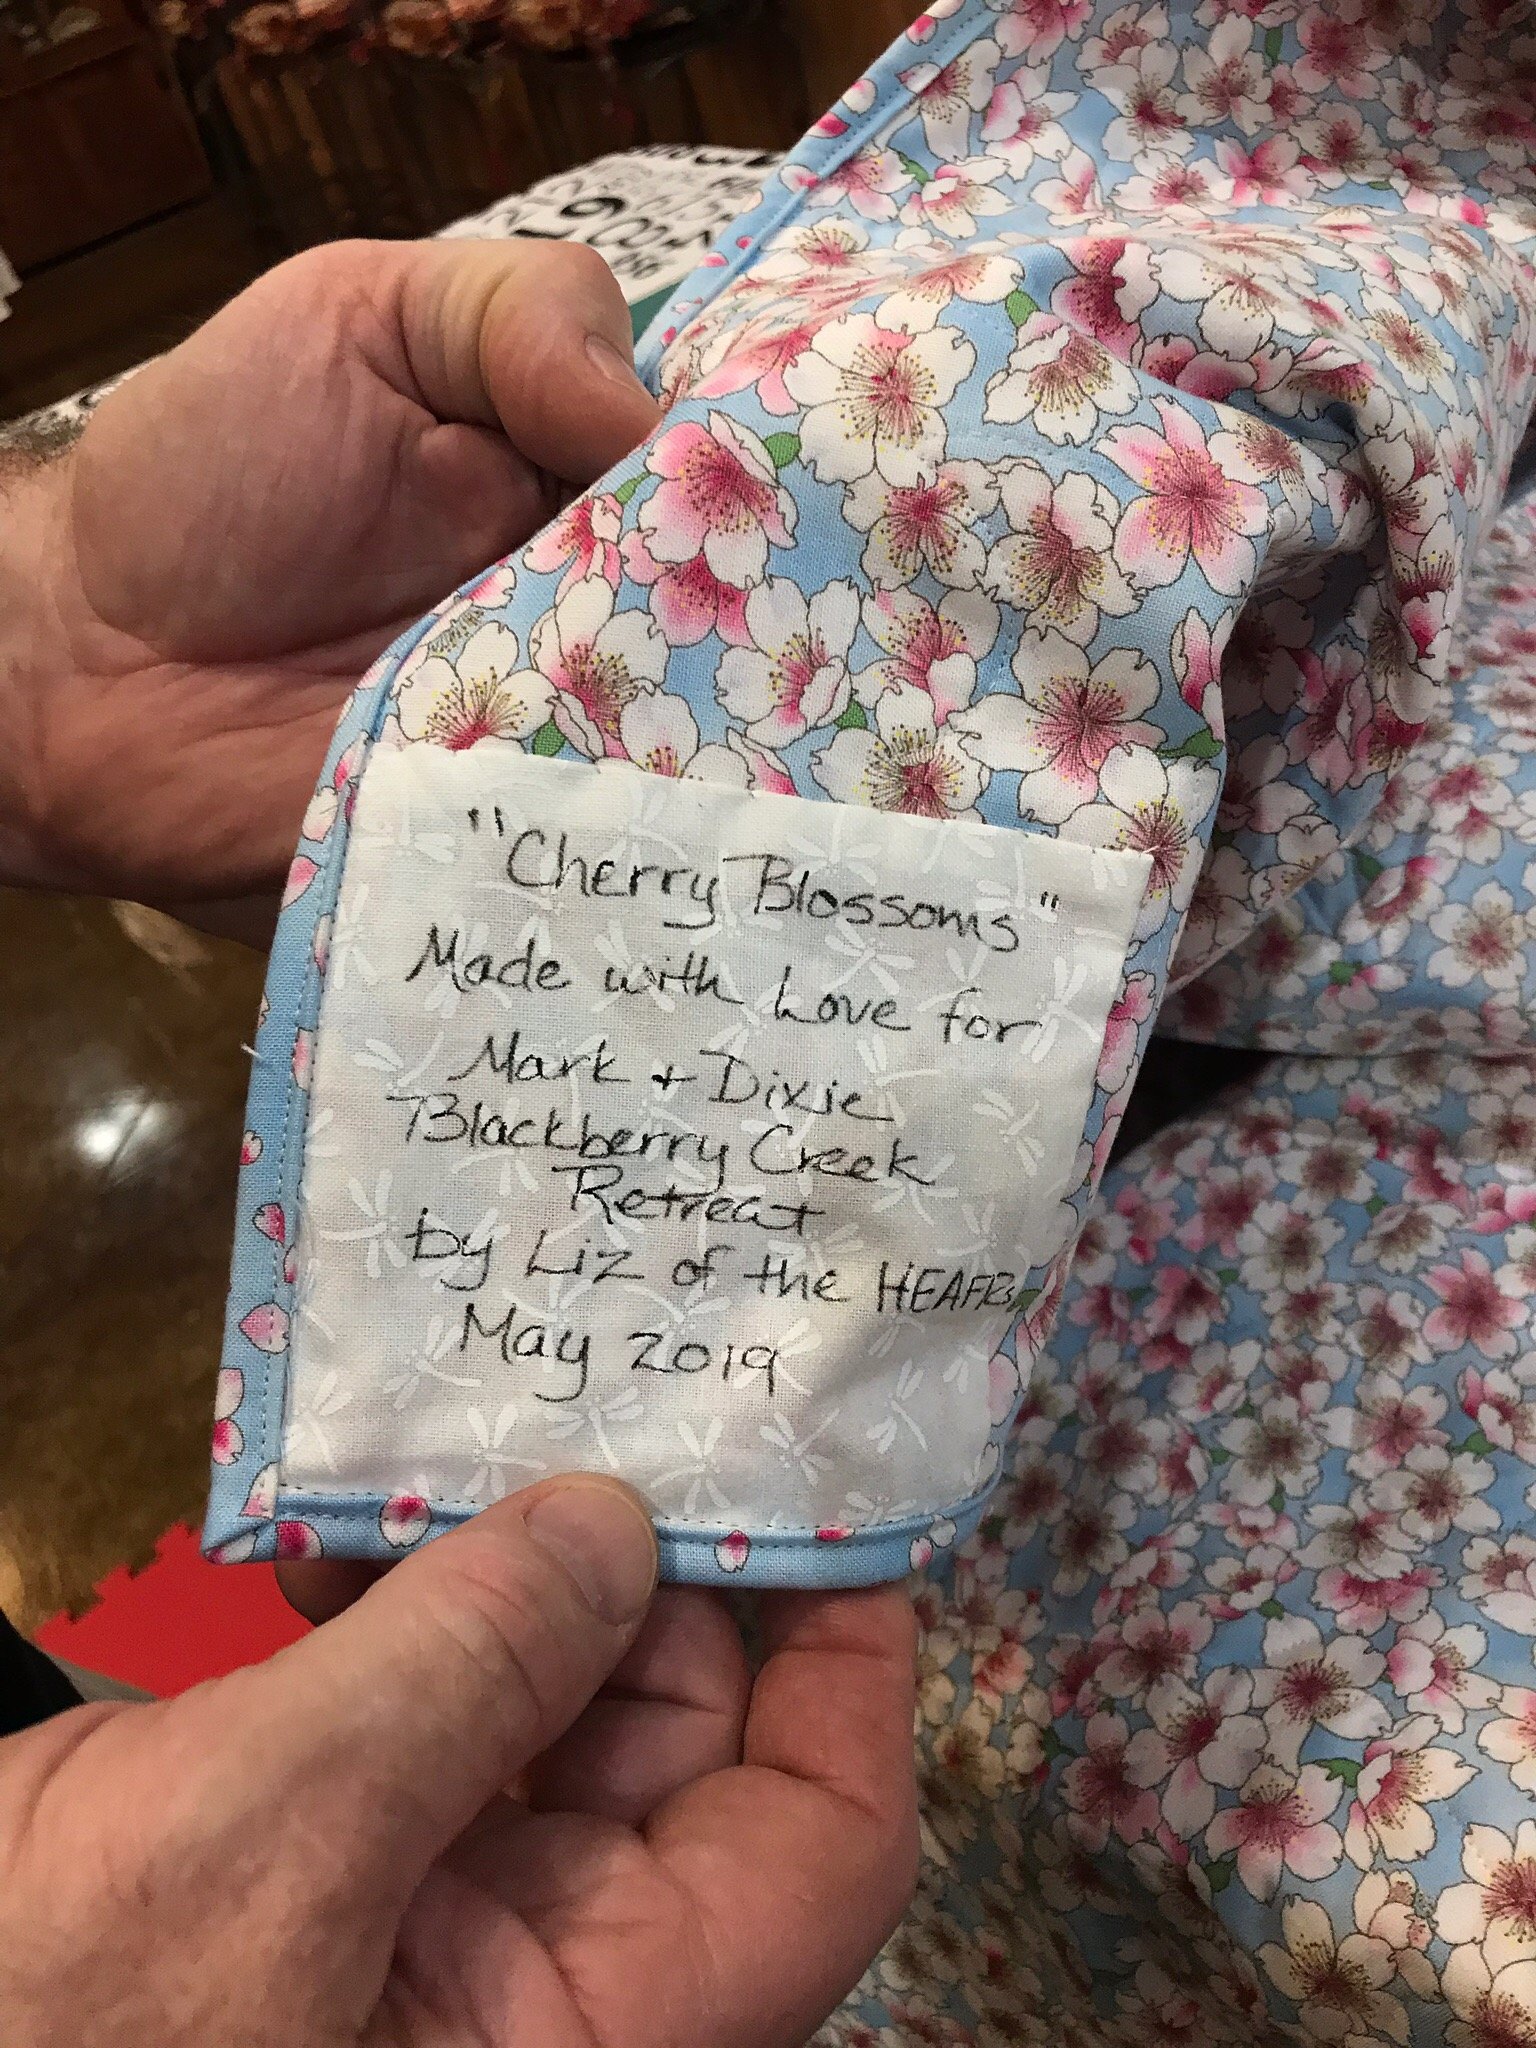 "Cherry Blossoms"
Made with Love for
Mark + Dixie
Blackberry Creek
Retreat
by Liz of the
May 2019